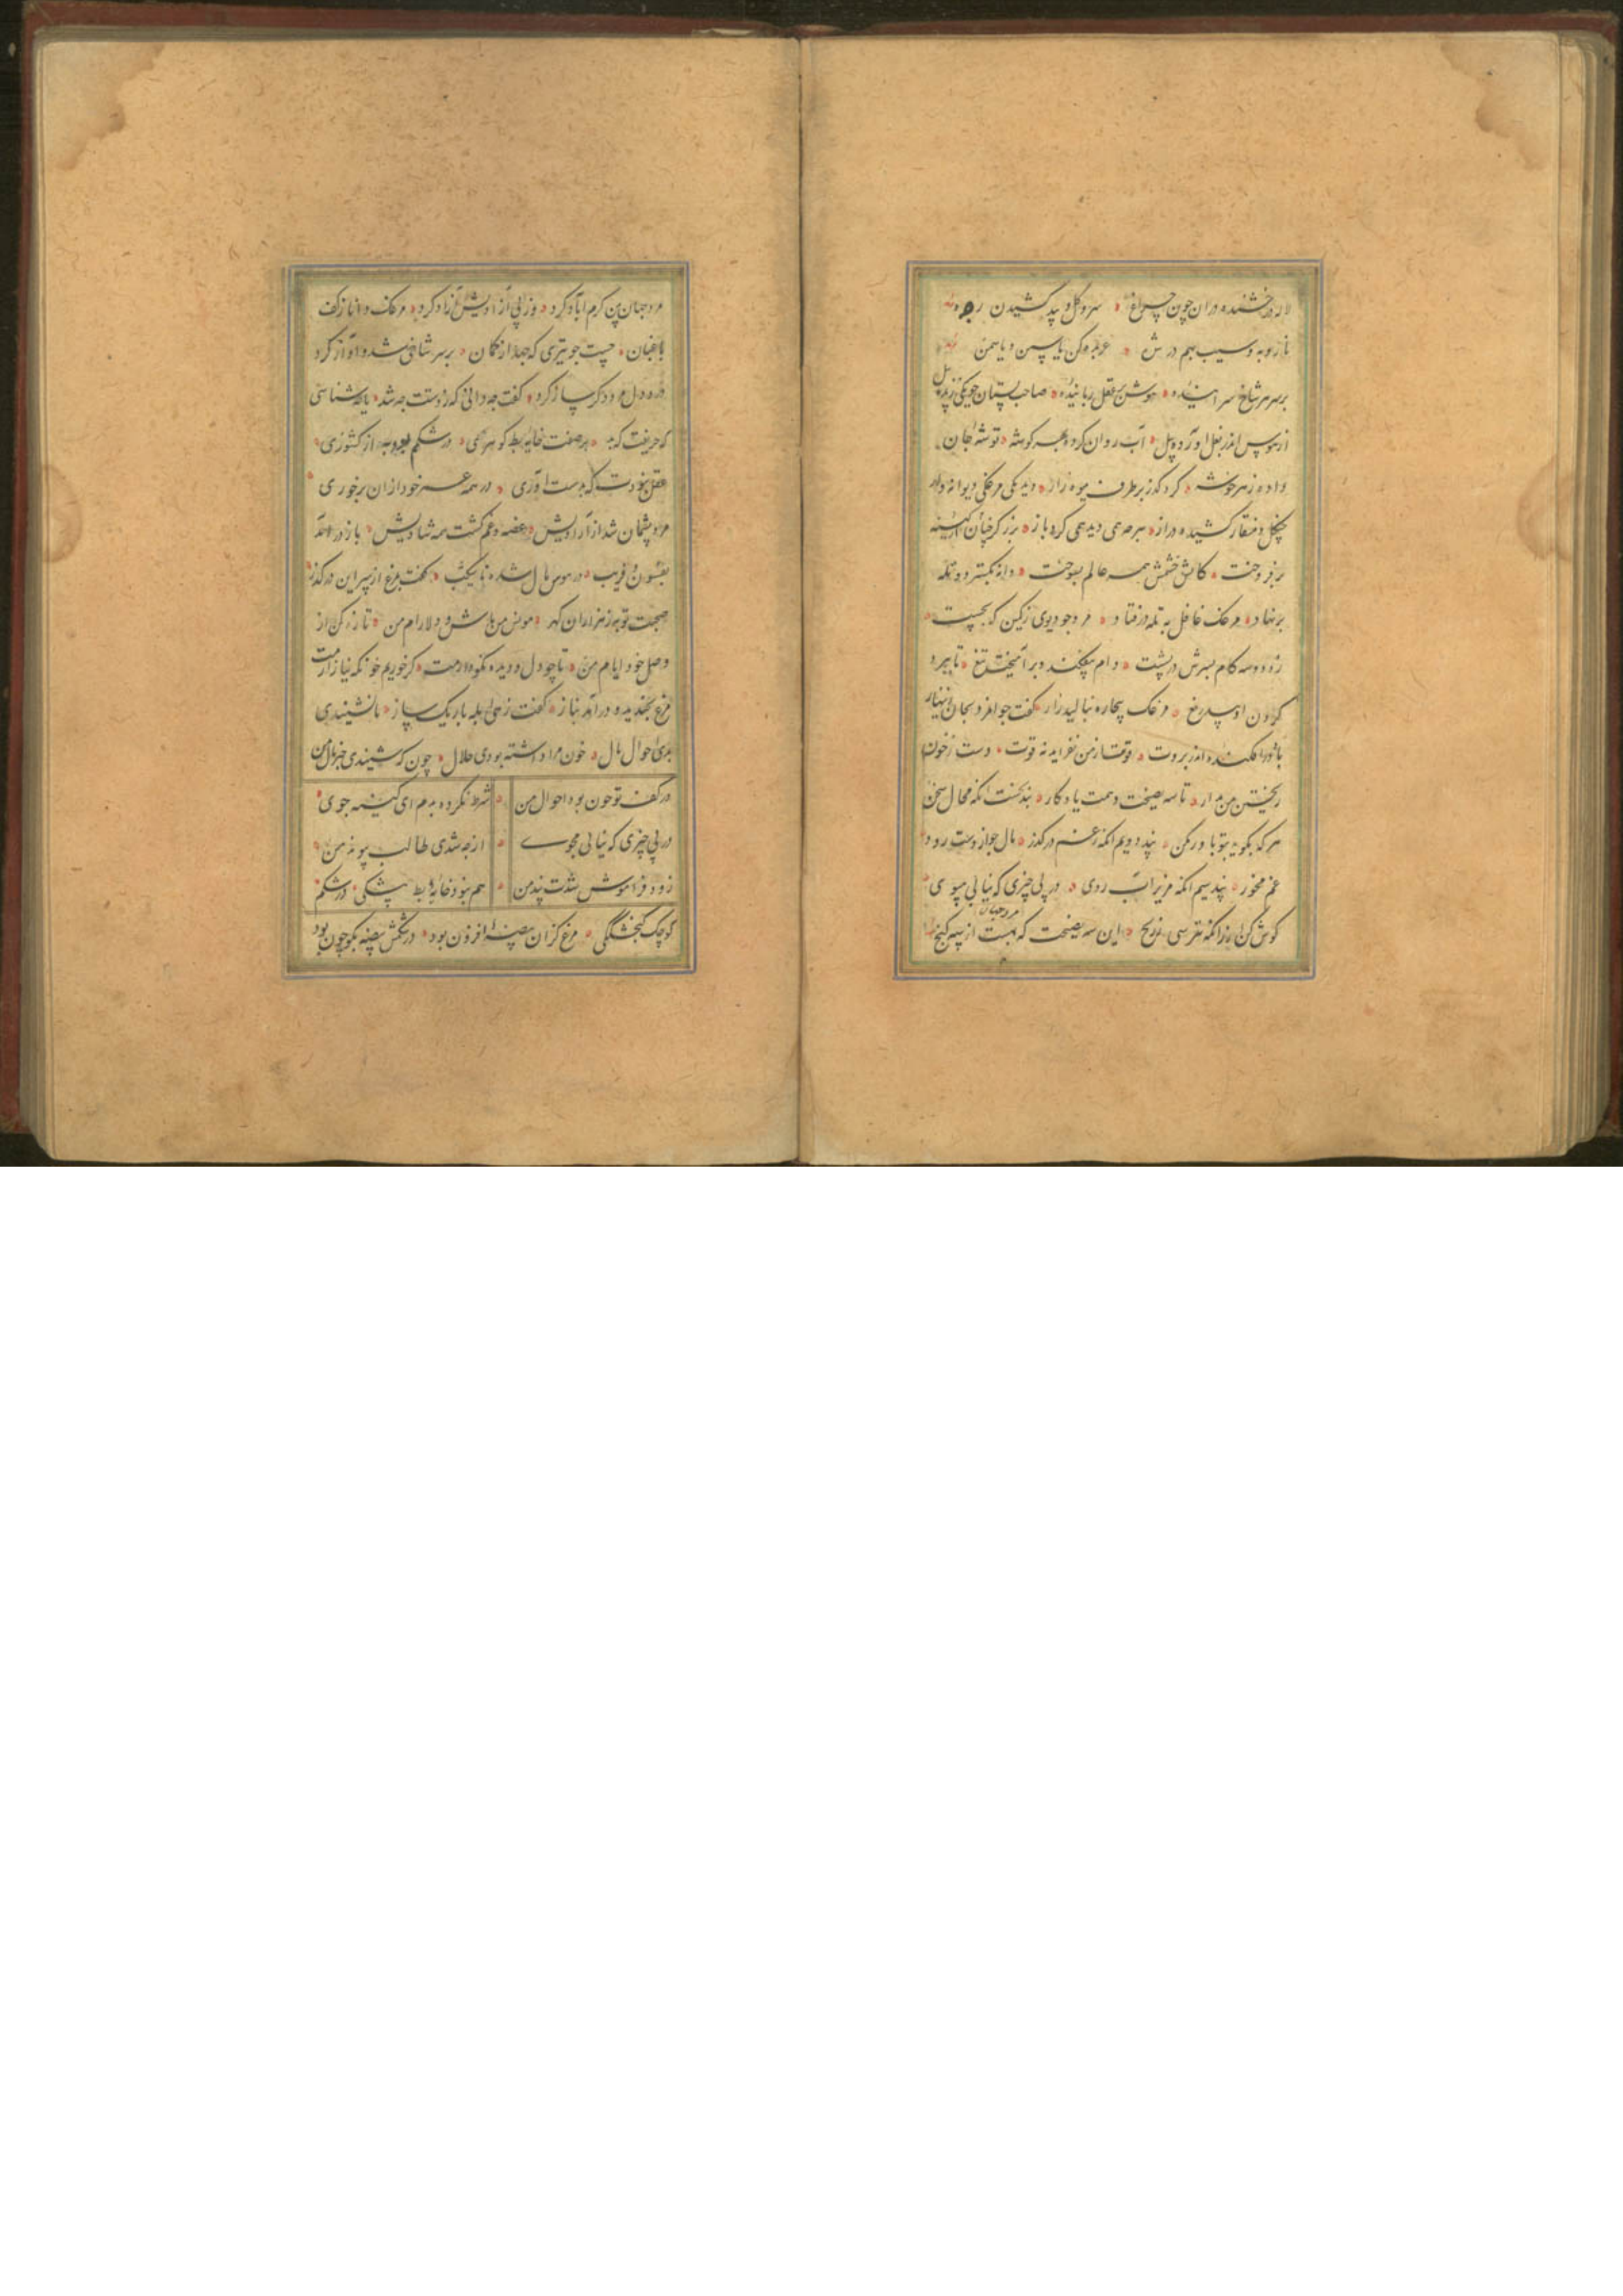 لاله درخشنده دران چون چراغ سرو و گل و بید کشیدن رده
نار و به و سیب بهم در عربده کن یاسمن
بر سر هر شاخ سراینده هوش بری عقل رباینده صاحب بستان چو یکی زنده پیل
از هوس اندر بغل آورده بیل آب روان کرده بهر گوشه توشه جان
داده ز هر خوشه کرد گذر بر طرف میوه زار دید یکی مرغکی دیوانه وار
چنگل و منقار کشیده دراز هر چه همی دید همی کرد باز برزگر
برفروخت کاتش خشمش همه عالم بسوخت دانه بگسترد و تله
بر نهاد مرغک غافل به تله درفتاد مرد چو دیوی ز کمین که بجست
زود دو سه کام دام بیفکند و برآمیخت تیغ تا ببرد
گردن او بیدریغ مرغک بیچاره بنالید زار گفت جوانمرد بجان
قوت از من نفزاید نه قوت دست ز خون
ریختن من بدار تا سه نصیحت دهمت یادگار پند نخست آنکه محال سخن
هر که بگوید بتو باور مکن پند دویم آنکه ز غم درگذر مال چو از دست رود
غم مخور پند سیم آنکه مریز آب روی در پی چیزی که نیابی مپوی
گوش کن این سه نصیحت که بهست از سه گنج
مرد جهان
مرد جهان بین کرم آباد کرد وز پی آزادیش آزاد کرد مرغک دانا ز کف
باغبان جست چو تیری که جهد از کمان بر سر شاخی شد و آواز کرد
در دل مرد دگر ساز کرد گفت چه دانی که ز دستت چه شد یا چه شناسی
که حریفت که بد بر صفت خایه بط گوهری در شکم بود به از کشوری
بخت نبودت که بدست آوری در همه عمر خود از آن برخوری
مرد پشیمان شد از آزادیش غصه و غم گشت همه شادیش باز درآمد
بفسون و فریب در هوس مال شده ناشکیب گفت بمرغ از سر این درگذر
صحبت تو به ز هزاران گهر مونس من باش و دلارام من تازه کن از
وصل خود ایام من تا چو دل و دیده نکو دارمت گر خوریم خون که نیازارمت
مرغ بخندید و درآمد بناز گفت زهی ابله باریک ساز تا نشنیدی
بدی احوال مال خون مرا داشته بودی حلال چون که شنیدی خبر مال من
در کف تو چون بود احوال من شرط نکردم بدم ای کینه جوی
در پی چیزی که نیابی مپوی از چه شدی طالب پیوند من
زود فراموش شدت پند من هم نبود خایه بط بیشکی در شکم
کوچک گنجشگکی مرغ کزان بیضه افزون بود در شکمش بیضه بگو چون بود